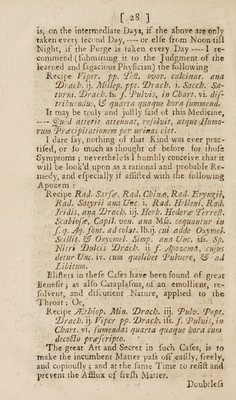 [ 28 ]
is, on the intermediate Days, if the above are only
taken every second Day, ---- or else from Noon till
Night, if the Purge is taken every Day ---- I re-
commend (submitting it to the Judgment of the
learned and sagacious Physician) the following
Recipe Viper. pp. Test. ovor. calcinat. ana
Drach. ij. Millep. ppt. Drach. i. Sacch. Sa-
turni, Drach. is. f. Pulvis, in Chart. vi. di-
stribuendu, & quarta quaque hora sumend.
It may be truly and justly said of this Medicine,
---- Quid atterit attenuat, resolvit, atque Humo-
rum Præcipitationem per urinas ciet.
I dare say, nothing of that Kind was ever prac-
tised, or so much as thought of before for those
Symptoms; nevertheless I humbly conceive that it
will be look'd upon as a rational and probable Re-
medy, and especially if assisted with the following
Apozem:
Recipe Rad. Sarsæ, Rad. Chinæ, Rad. Eryngii,
Rad. Satyrii ana Unc. i. Rad. Helleni, Rad.
Iridis, ana Drach. iij. Herb. Hederæ Terrest.
Scabiosæ, Capil. ven. ana Mß. coquantur in
f. q. Aq. font. ad colat. lbij. cui adde Oxymel.
Scillit. & Oxymel. Simp. ana Unc. iis. Sp.
Nitri Dulcis Drach. ij. f. Apozema, cujus
detur Unc. iv. cum quolibet Pulvere, & ad
Libitum.
Blisters in these Cases have been found of great
Benefit; as also Cataplasms, of an emollient, re-
solvent, and discutient Nature, applied to the
Throat: Or,
Recipe Æthiop. Min. Drach. iij. Pulv. Pept.
Drach. ij. Viper pp. Drach. iis. f. Pulvis, in
Chart. vi. sumendas quarta quaque hora cum
decocto præscripto.
The great Art and Secret in such Cases, is to
make the incumbent Matter pass off easily, freely,
and copiously; and at the same Time to resist and
prevent the Afflux of fresh Matter.
Doubtless